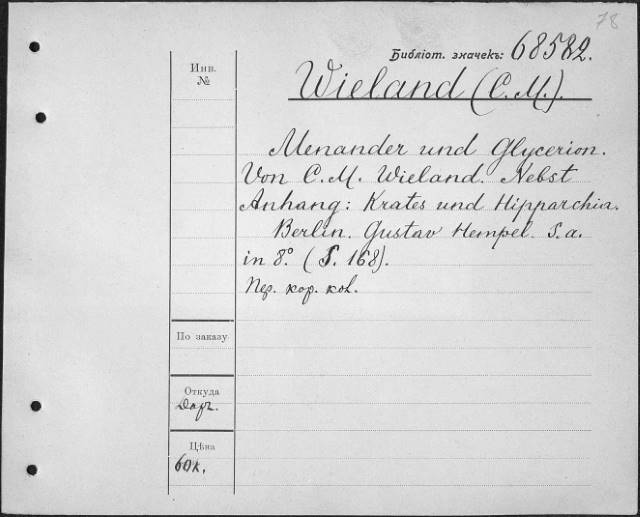 78
Библіот. значекъ: 68582.
Инв.
№
Wieland (C. M.).
Menander und Glycerion.
Von C. M. Wieland. Nebst
Anhang: Krates und Hipparchia.
Berlin. Gustav Hempel. S. a.
in 8°. (S. 168).
Пер. кор. кож.
По заказу
Откуда
Даръ.
Цѣна
60 к.